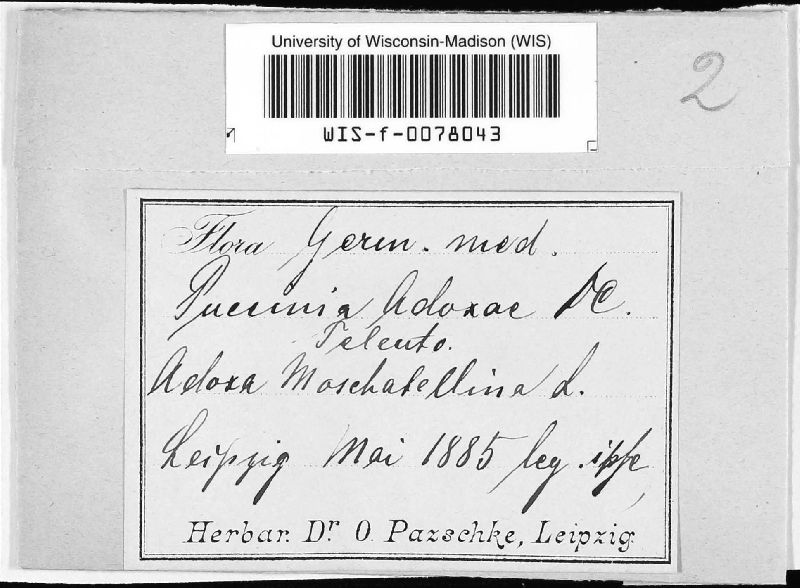 University of Wisconsin-Madison (WIS)
WIS-f-0078043
2
Flora Germ. med.
Puccinia Adoxae DC.
Teleuto.
Adoxa Moschatellina L.
Leipzig Mai 1885 leg. ipse
Herbar. Dr O. Pazschke, Leipzig.